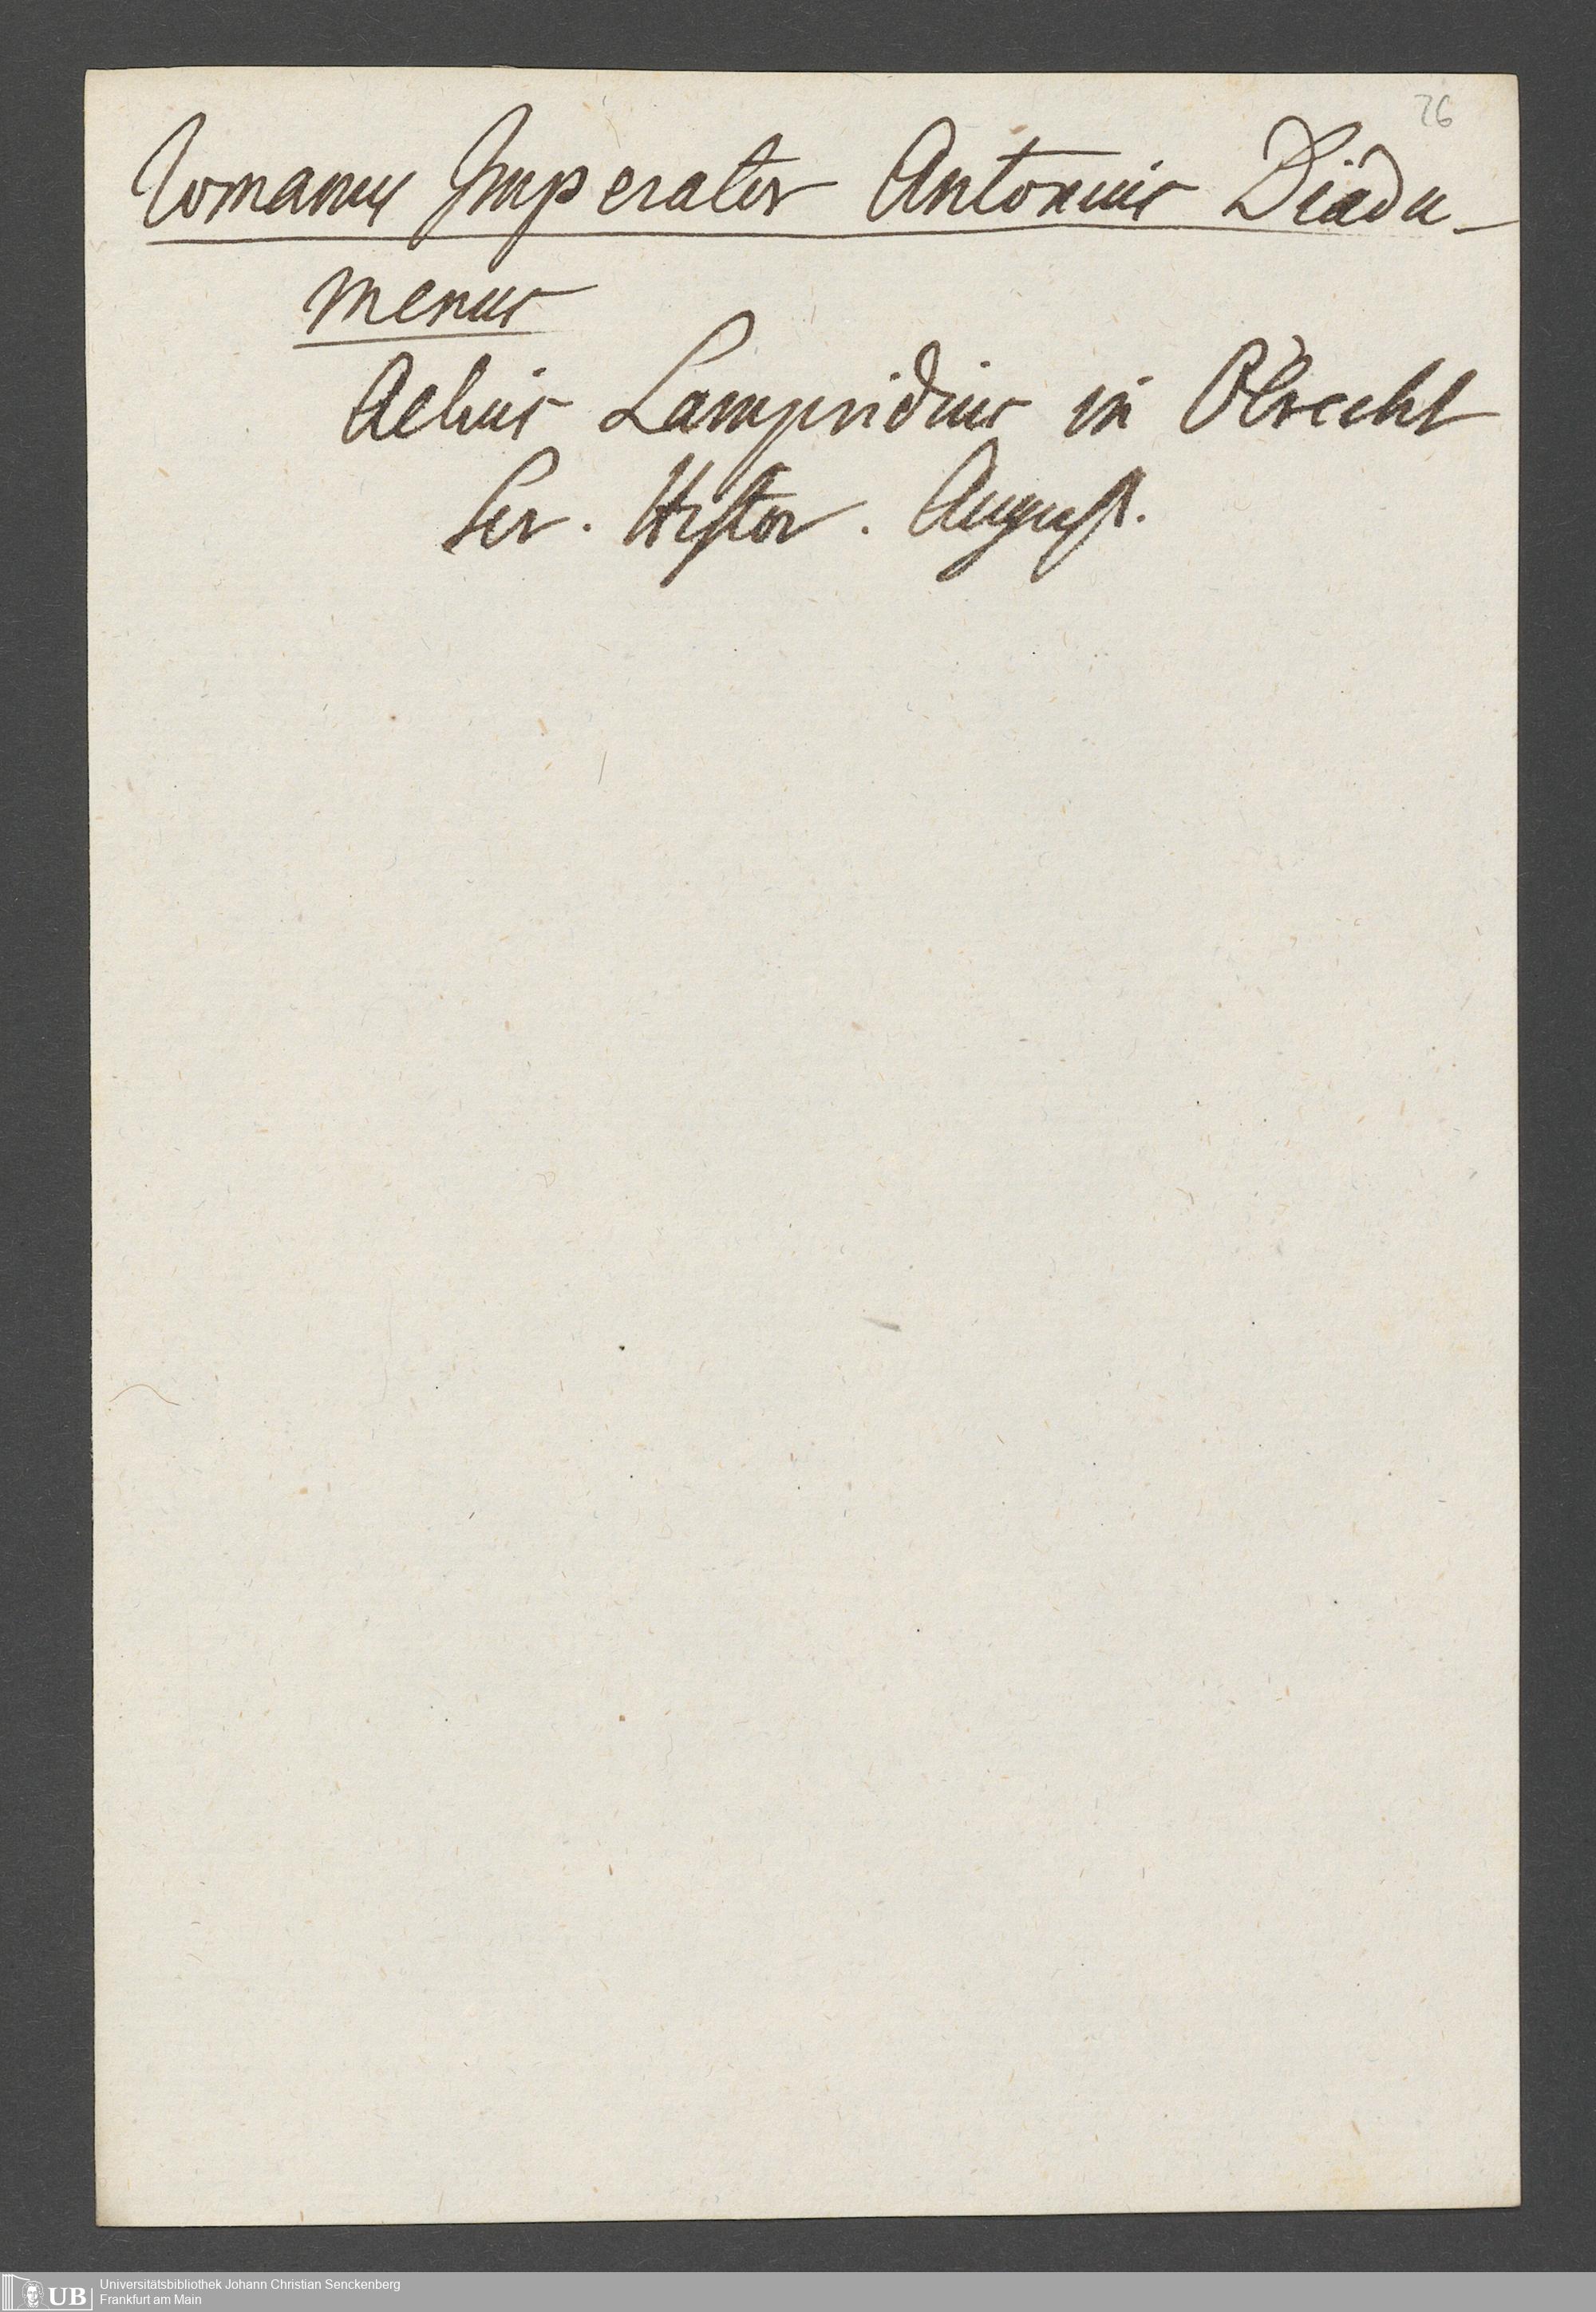 26
Romanus Imperator Antonius Diadu-
menus
Aelius Lampridius in Obrecht
Scr. Histor. August.
UB
Universitätsbibliothek Johann Christian Senckenberg
Frankfurt am Main